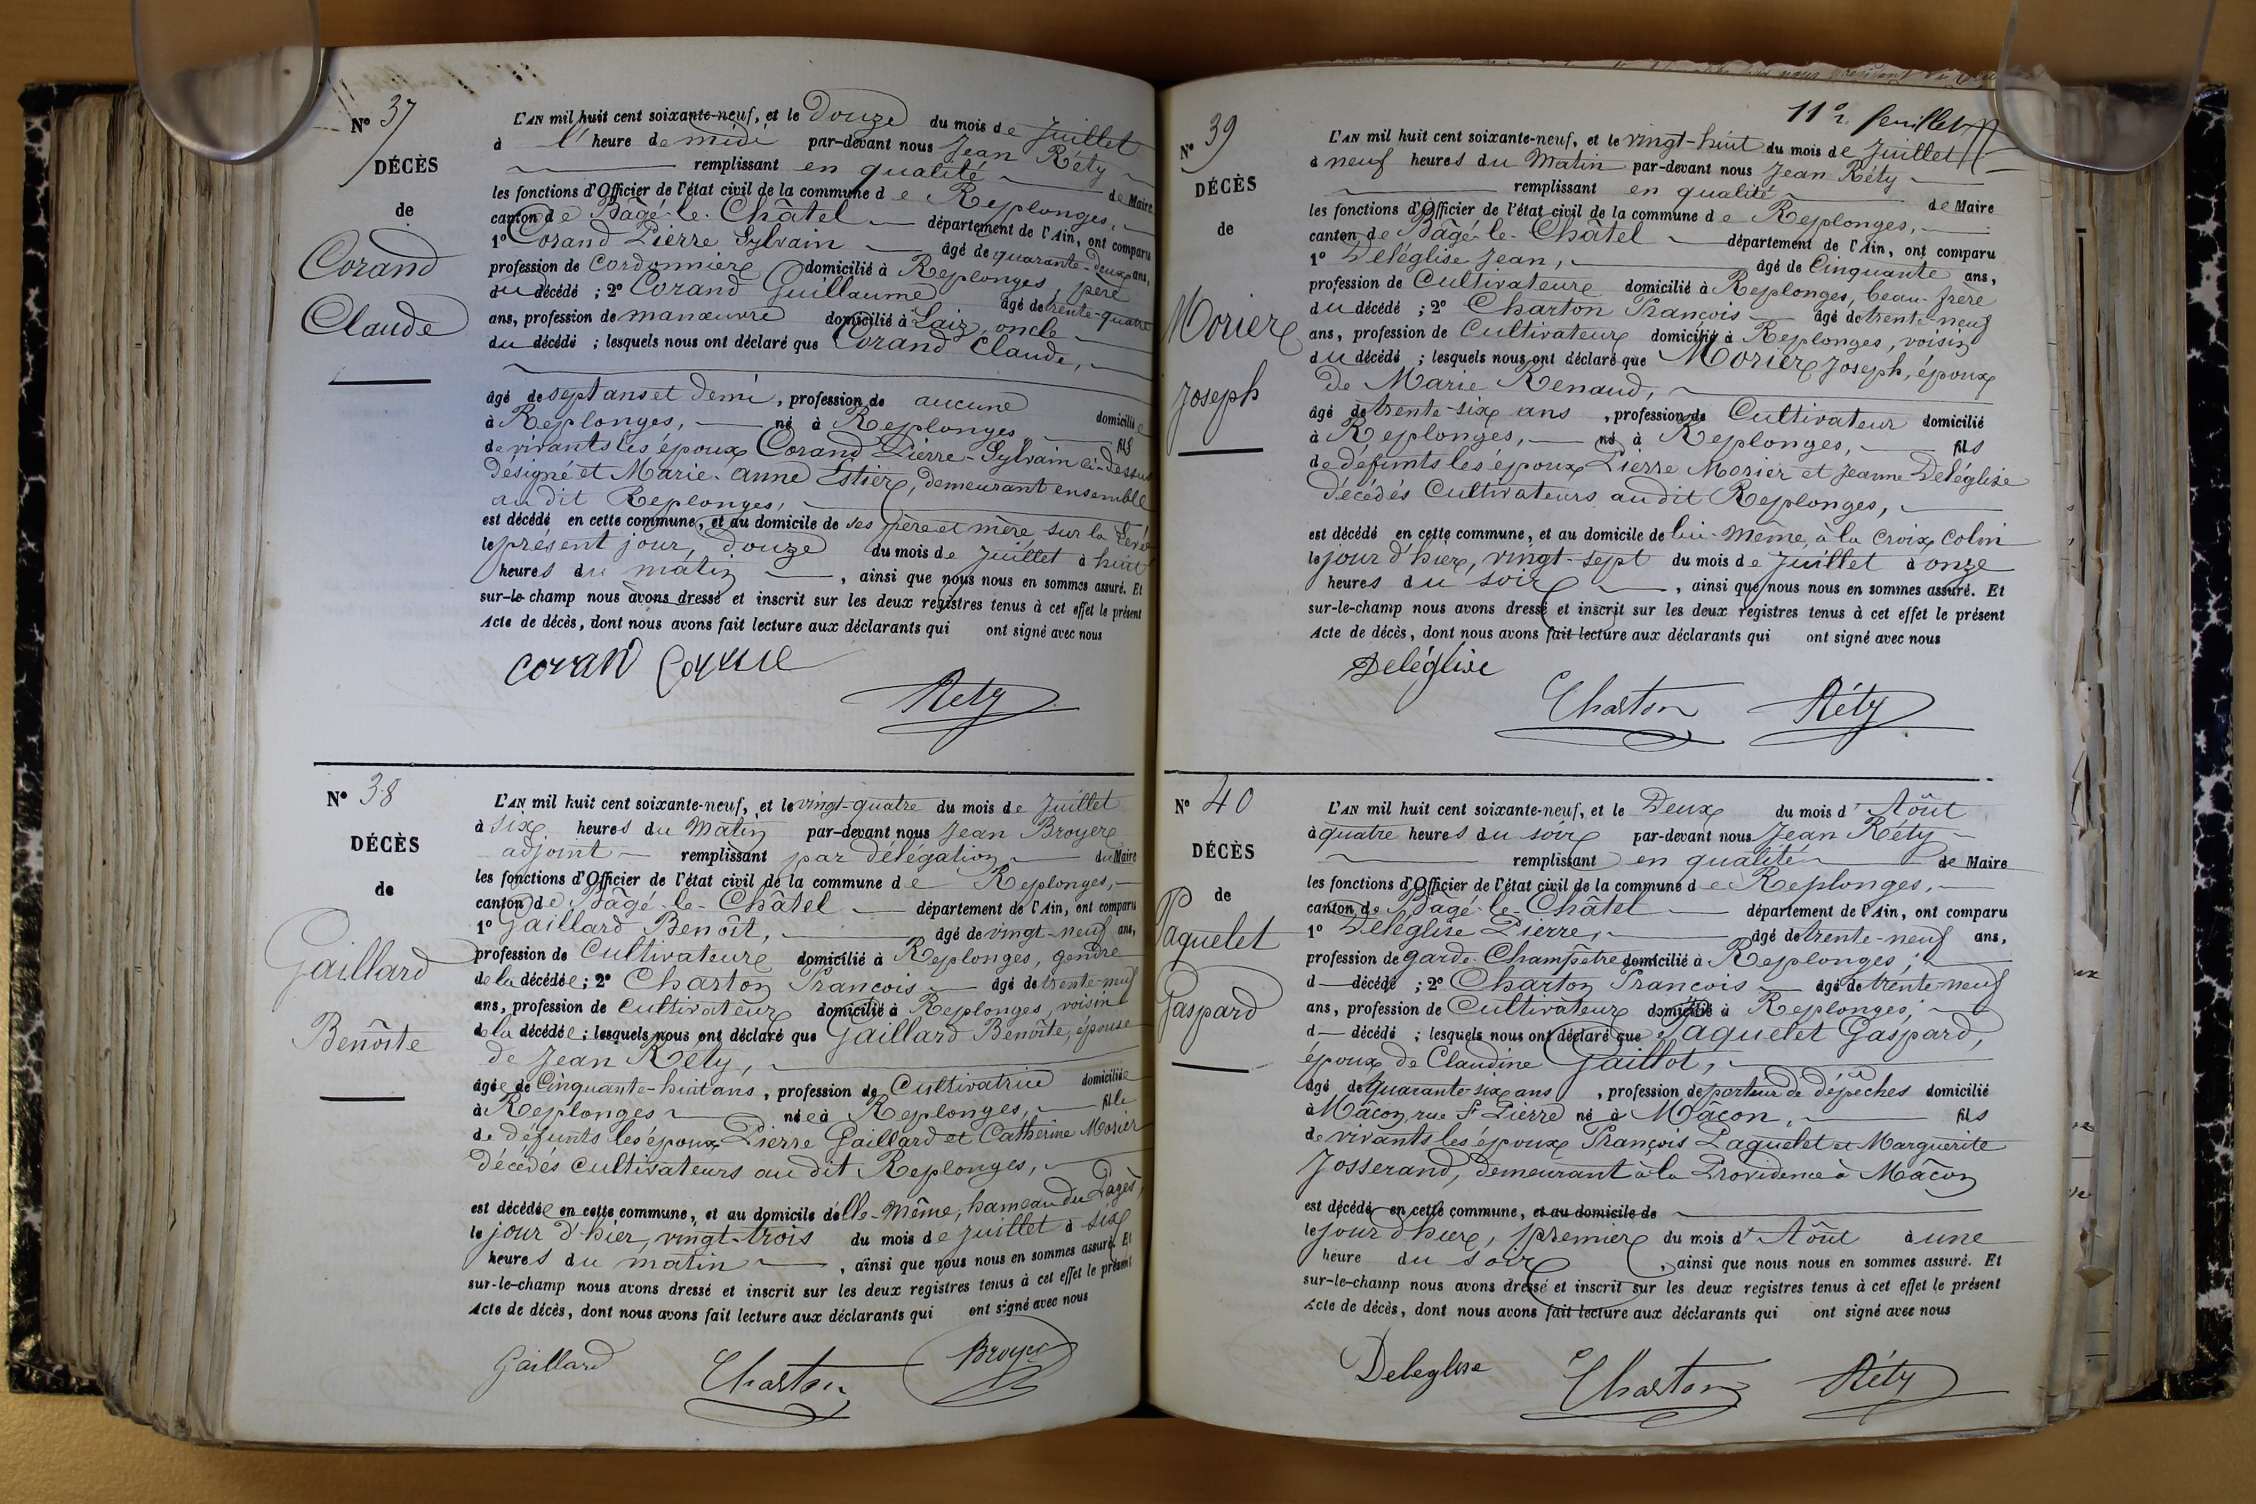 N° 37
DÉCÈS
de
Corand
Claude
L'AN mil huit cent soixante-neuf, et le Douze du mois de Juillet
à l' heure de midi par-devant nous Jean Réty
remplissant en qualité de Maire
les fonctions d'Officier de l'état civil de la commune de Replonges,
canton de Bâgé-le-Châtel département de l'Ain, ont comparu
1° Corand Pierre Sylvain âgé de quarante-deux ans,
profession de Cordonnier domicilié à Replonges, père
du décédé ; 2° Corand Guillaume âgé de trente-quatre
ans, profession de manœuvre domicilié à Laiz, oncle
du décédé ; lesquels nous ont déclaré que Corand Claude,
âgé de sept ans et demi, profession de aucune domicilié
à Replonges, né à Replonges fils
de vivants les époux Corand Pierre-Sylvain ci-dessus
désigné et Marie-Anne Estier, demeurant ensemble
au dit Replonges,
est décédé en cette commune, et au domicile de ses père et mère, sur la Levée
le présent jour, douze du mois de Juillet à huit
heures du matin, ainsi que nous nous en sommes assuré. Et
sur-le-champ nous avons dressé et inscrit sur les deux registres tenus à cet effet le présent
Acte de décès, dont nous avons fait lecture aux déclarants qui ont signé avec nous
Coran
Réty
N° 38
DÉCÈS
de
Gaillard
Benoîte
L'AN mil huit cent soixante-neuf, et le vingt-quatre du mois de Juillet
à six heures du Matin par-devant nous Jean Broyer
adjoint remplissant par délégation du Maire
les fonctions d'Officier de l'état civil de la commune de Replonges,
canton de Bâgé-le-Châtel département de l'Ain, ont comparu
1° Gaillard Benoît, âgé de vingt-neuf ans,
profession de Cultivateur domicilié à Replonges, gendre
de la décédée ; 2° Charton François âgé de trente-neuf
ans, profession de Cultivateur domicilié à Replonges, voisin
de la décédée ; lesquels nous ont déclaré que Gaillard Benoîte, épouse
de Jean Réty,
âgée de Cinquante-huit ans, profession de Cultivatrice domiciliée
à Replonges née à Replonges, fille
de défunts les époux Pierre Gaillard et Catherine Morier
décédés Cultivateurs au dit Replonges,
est décédée en cette commune, et au domicile d'elle-même, hameau du Pagès,
le jour d'hier, vingt-trois du mois de Juillet à six
heures du matin, ainsi que nous nous en sommes assuré. Et
sur-le-champ nous avons dressé et inscrit sur les deux registres tenus à cet effet le présent
Acte de décès, dont nous avons fait lecture aux déclarants qui ont signé avec nous
Gaillard Charton Broyer
11e feuillet
N° 39
DÉCÈS
de
Morier
Joseph
L'AN mil huit cent soixante-neuf, et le vingt-huit du mois de Juillet
à neuf heures du Matin par-devant nous Jean Réty
remplissant en qualité de Maire
les fonctions d'Officier de l'état civil de la commune de Replonges,
canton de Bâgé-le-Châtel département de l'Ain, ont comparu
1° Deléglise Jean, âgé de Cinquante ans,
profession de Cultivateur domicilié à Replonges, beau-frère
du décédé ; 2° Charton François âgé de trente-neuf
ans, profession de Cultivateur domicilié à Replonges, voisin
du décédé ; lesquels nous ont déclaré que Morier Joseph, époux
de Marie Renaud,
âgé de trente-six ans, profession de Cultivateur domicilié
à Replonges, né à Replonges, fils
de défunts les époux Pierre Morier et Jeanne Deléglise
décédés Cultivateurs au dit Replonges,
est décédé en cette commune, et au domicile de lui-même, à la Croix Colin
le jour d'hier, vingt-sept du mois de Juillet à onze
heures du soir, ainsi que nous nous en sommes assuré. Et
sur-le-champ nous avons dressé et inscrit sur les deux registres tenus à cet effet le présent
Acte de décès, dont nous avons fait lecture aux déclarants qui ont signé avec nous
Deléglise
Charton Réty
N° 40
DÉCÈS
de
Paquelet
Gaspard
L'AN mil huit cent soixante-neuf, et le Deux du mois d'Août
à quatre heures du soir par-devant nous Jean Réty
remplissant en qualité de Maire
les fonctions d'Officier de l'état civil de la commune de Replonges,
canton de Bâgé-le-Châtel département de l'Ain, ont comparu
1° Deléglise Pierre, âgé de trente-neuf ans,
profession de garde-Champêtre domicilié à Replonges ;
d décédé ; 2° Charton François âgé de trente-neuf
ans, profession de Cultivateur domicilié à Replonges ;
d décédé ; lesquels nous ont déclaré que Paquelet Gaspard,
époux de Claudine Gaillot,
âgé de quarante-six ans, profession de porteur de dépêches domicilié
à Mâcon, rue St Pierre né à Mâcon, fils
de vivants les époux François Paquelet et Marguerite
Josserand, demeurant à la Providence à Mâcon
est décédé en cette commune, et au domicile de
le jour d'hier, premier du mois d'Août à une
heure du soir, ainsi que nous nous en sommes assuré. Et
sur-le-champ nous avons dressé et inscrit sur les deux registres tenus à cet effet le présent
Acte de décès, dont nous avons fait lecture aux déclarants qui ont signé avec nous
Deleglise Charton Réty